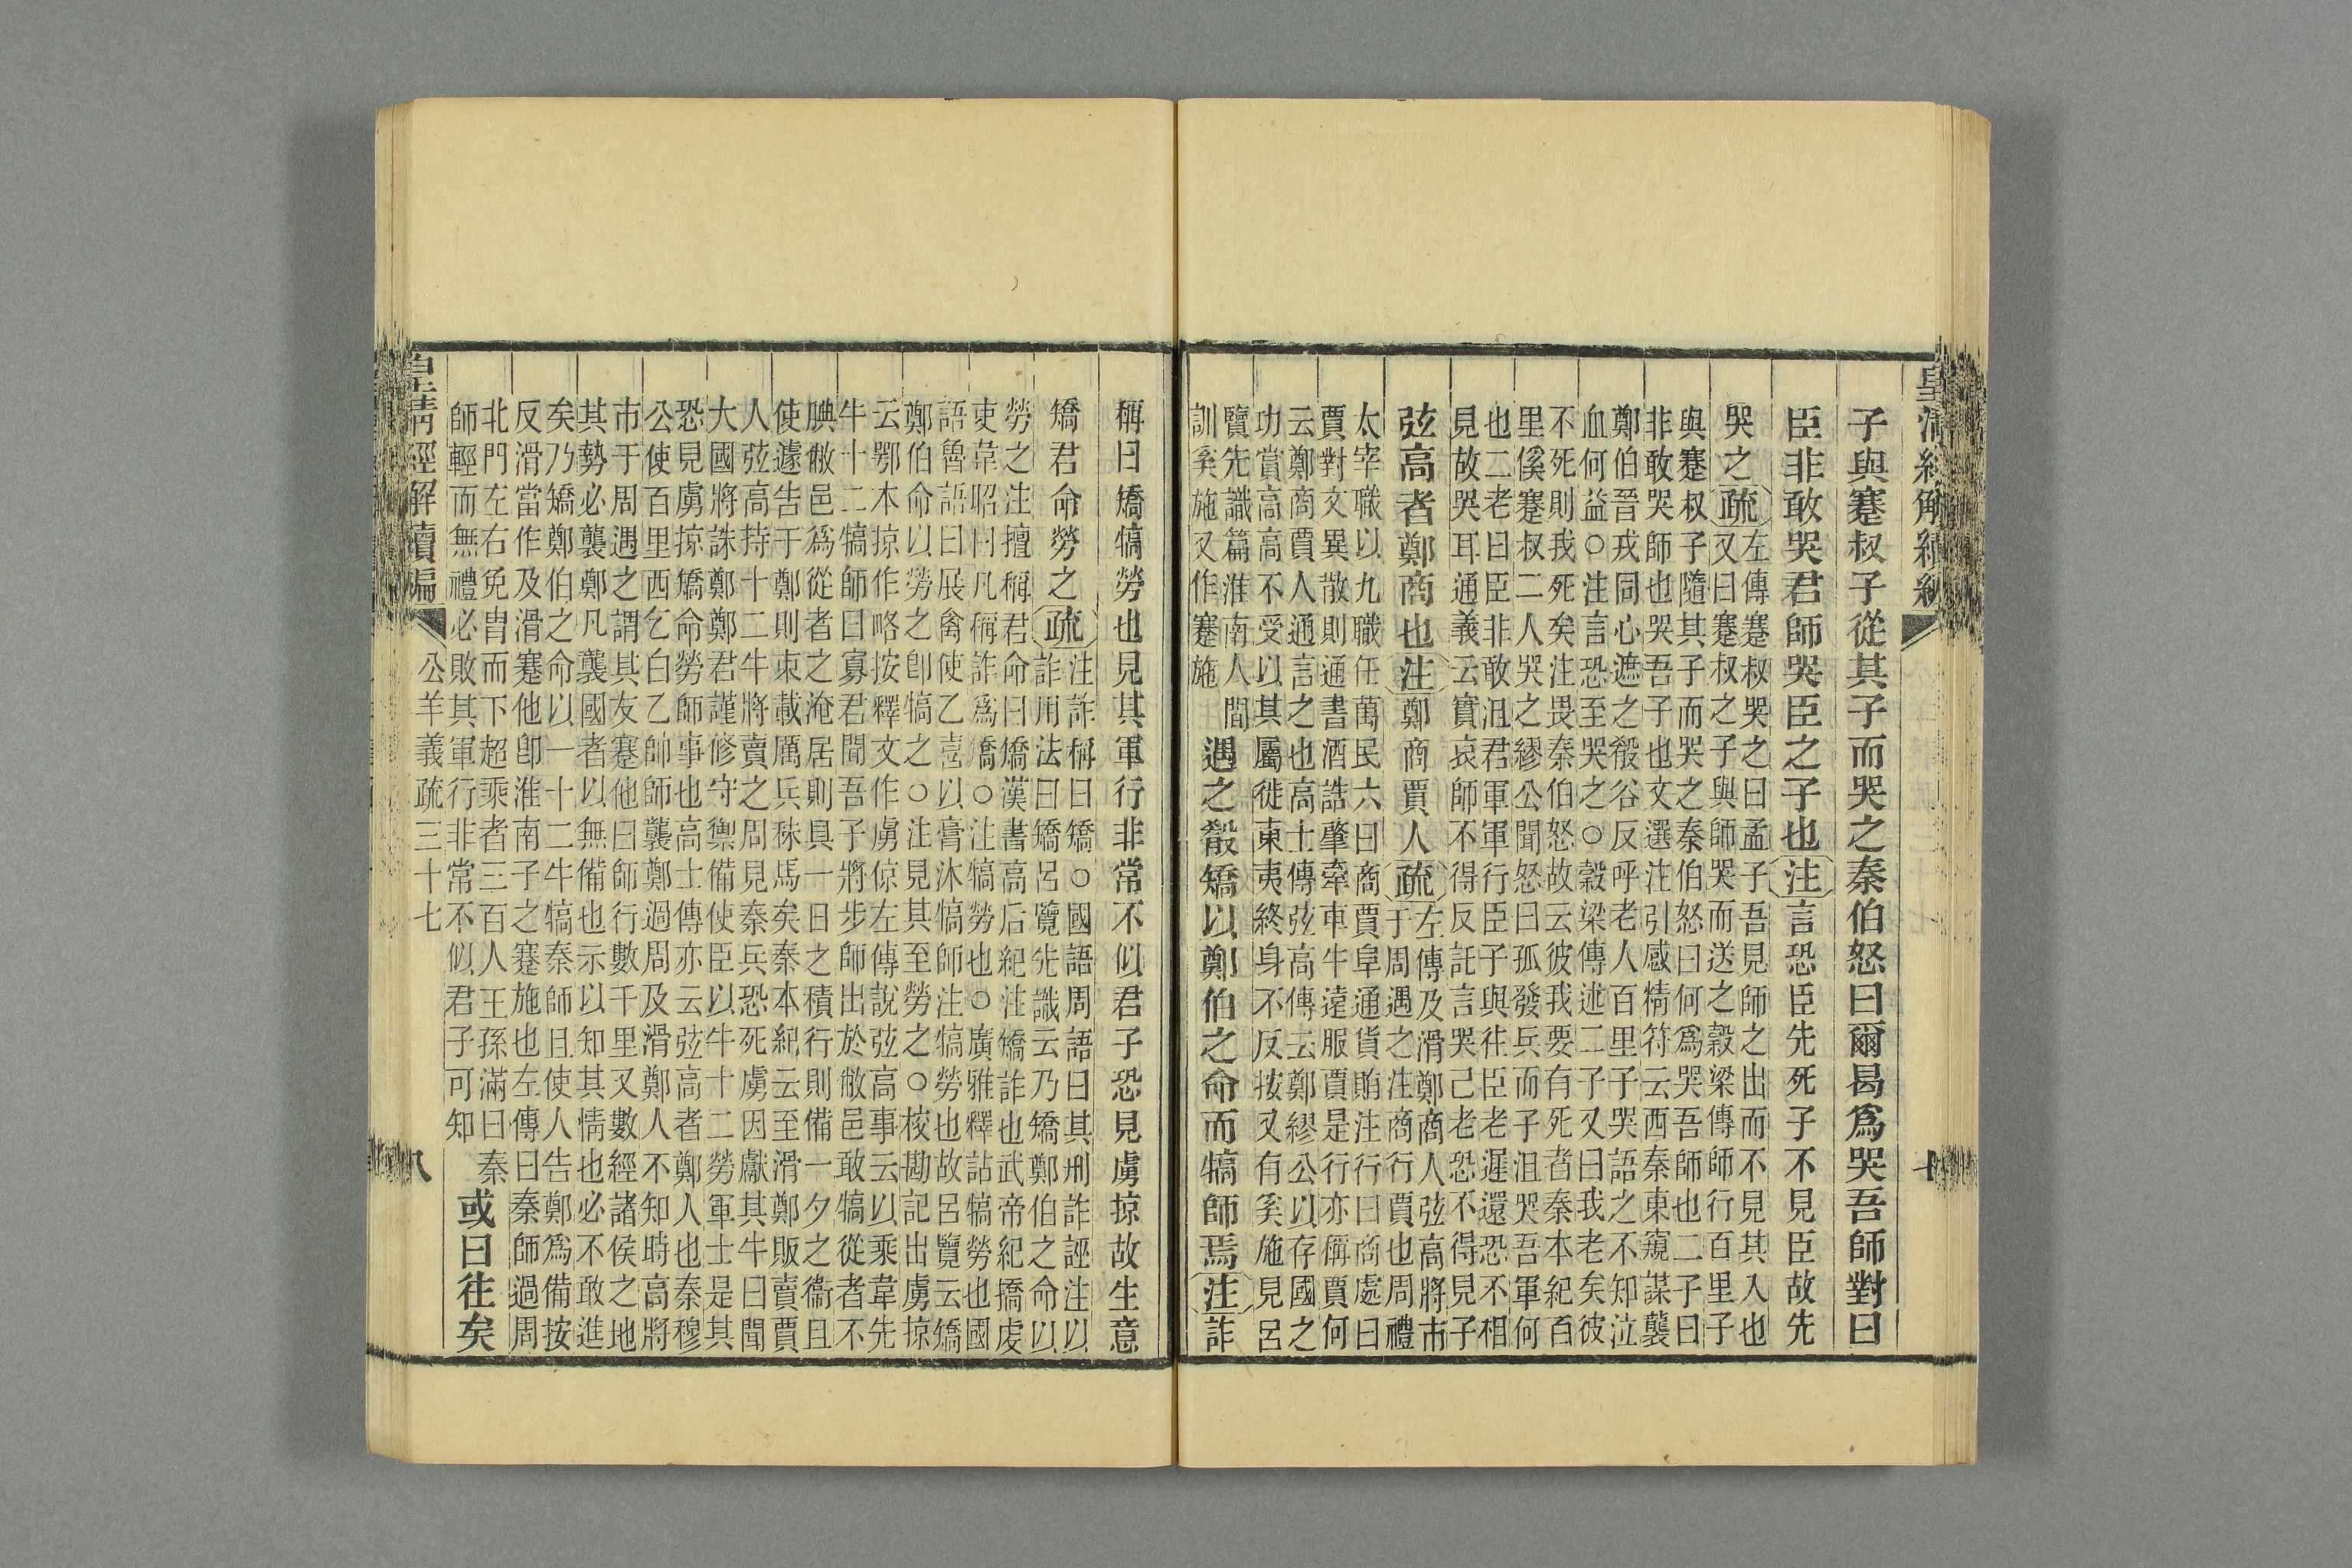 皇清經解續編
子與蹇叔子從其子而哭之秦伯怒曰爾曷爲哭吾師對曰
臣非敢哭君師哭臣之子也注言恐臣先死子不見臣故先
哭之疏左傳蹇叔哭之曰孟子吾見師之出而不見其入也
又曰蹇叔之子與師哭而送之穀梁傳師行百里子
與蹇叔子隨其子而哭之秦伯怒曰何爲哭吾師也二子曰
非敢哭師也哭吾子也文選注引感精符云西秦東窺謀襲
鄭伯晉戎同心遮之殽谷反呼老人百里子哭語之不知泣
血何益○注言恐至哭之○穀梁傳述二子又曰我老矣彼
不死則我死矣注畏秦伯怒故云彼我要有死者秦本紀百
里傒蹇叔二人哭之繆公聞怒曰孤發兵而子沮哭吾軍何
也二老曰臣非敢沮君軍軍行臣子與往臣老遲還恐不相
見故哭耳通義云實哀師不得反託言哭己老恐不得見子
弦高者鄭商也注鄭商賈人疏左傳及滑鄭商人弦高將市
于周遇之注商行賈也周禮
太宰職以九職任萬民六曰商賈阜通貨賄注行曰商處曰
賈對文異散則通書酒誥肇牽車牛遠服賈是行亦稱賈何
云鄭商賈人通言之也高士傳弦高傳云鄭繆公以存國之
功賞高高不受以其屬徙東夷終身不反按又有奚施見呂
覽先識篇淮南人間
訓奚施又作蹇施
遇之殽矯以鄭伯之命而犒師焉注詐
稱曰矯犒勞也見其軍行非常不似君子恐見虜掠故生意
矯君命勞之疏注詐稱曰矯○國語周語曰其刑詐誣注以
詐用法曰矯呂覽先識云乃矯鄭伯之命以
勞之注擅稱君命曰矯漢書高后紀注矯詐也武帝紀撟虔
吏韋昭曰凡稱詐爲矯○注犒勞也○廣雅釋詁犒勞也國
語魯語曰展禽使乙喜以膏沐犒師注犒勞也故呂覽云矯
鄭伯命以勞之卽犒之○注見其至勞之○校勘記出虜掠
云鄂本掠作略按釋文作虜倞左傳說弦高事云以乘韋先
牛十二犒師曰寡君聞吾子將步師出於敝邑敢犒從者不
腆敝邑爲從者之淹居則具一日之積行則備一夕之衞且
使遽告于鄭則束載厲兵秣馬矣秦本紀云至滑鄭販賣賈
人弦高持十二牛將賣之周見秦兵恐死虜因獻其牛曰聞
大國將誅鄭鄭君謹修守禦備使臣以牛十二勞軍士是其
恐見虜掠矯命勞師事也高士傳亦云弦高者鄭人也秦穆
公使百里西乞白乙帥師襲鄭過周及滑鄭人不知時高將
市于周遇之謂其友蹇他曰師行數千里又數經諸侯之地
其勢必襲鄭凡襲國者以無備也示以知其情也必不敢進
矣乃矯鄭伯之命以一十二牛犒秦師且使人告鄭爲備按
反滑當作及滑蹇他卽淮南子之蹇施也左傳曰秦師過周
北門左右免胄而下超乘者三百人王孫滿曰秦
師輕而無禮必敗其軍行非常不似君子可知
或曰往矣
皇清經解續編
公羊義疏三十七
八